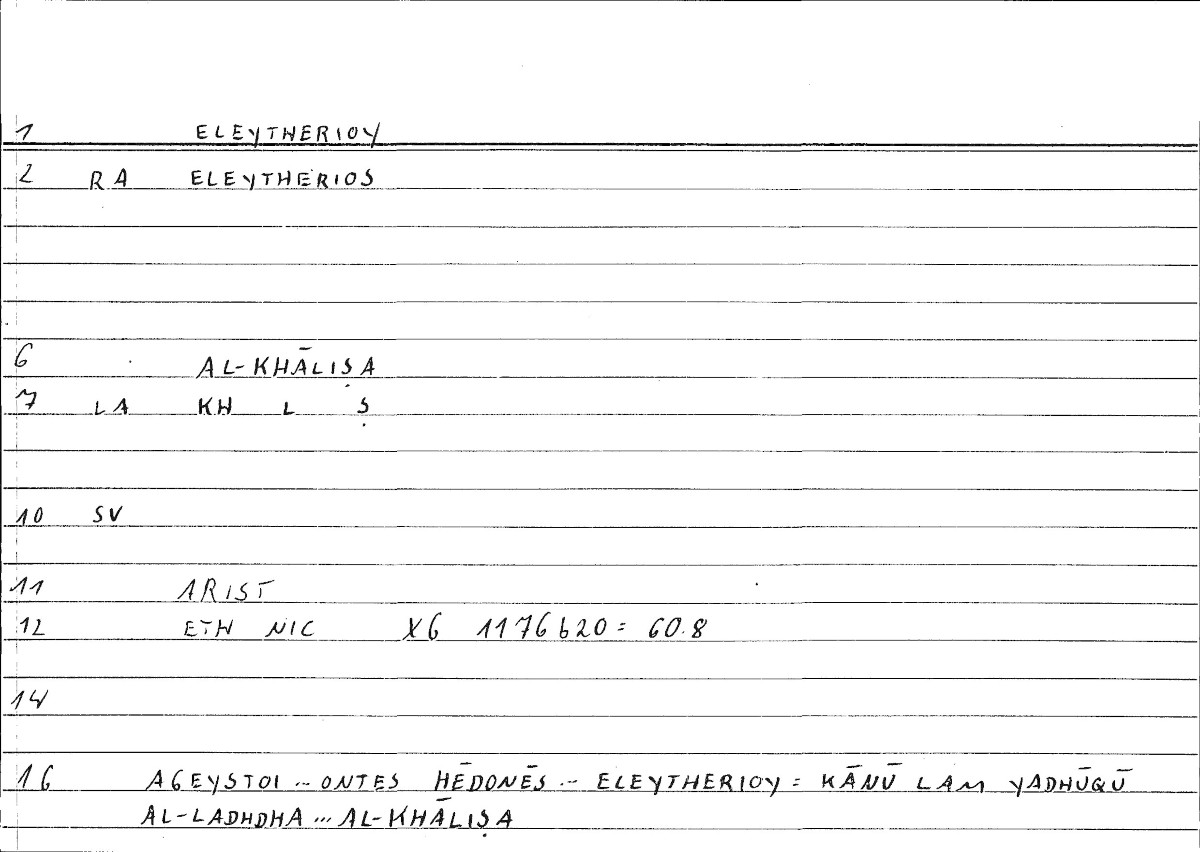 1 ELEYTHERIOY
2 RA ELEYTHERIOS
6 AL-KHĀLIṢA
7 LA KH L Ṣ
10 SV
11 ARIST
12 ETH NIC X6 1176b20 = 60.8
14
16 AGEYSTOI ... ONTES HĒDONĒS ... ELEYTHERIOY = KĀNŪ LAM YADHŪQŪ
AL-LADHDHA ... AL-KHĀLIṢA